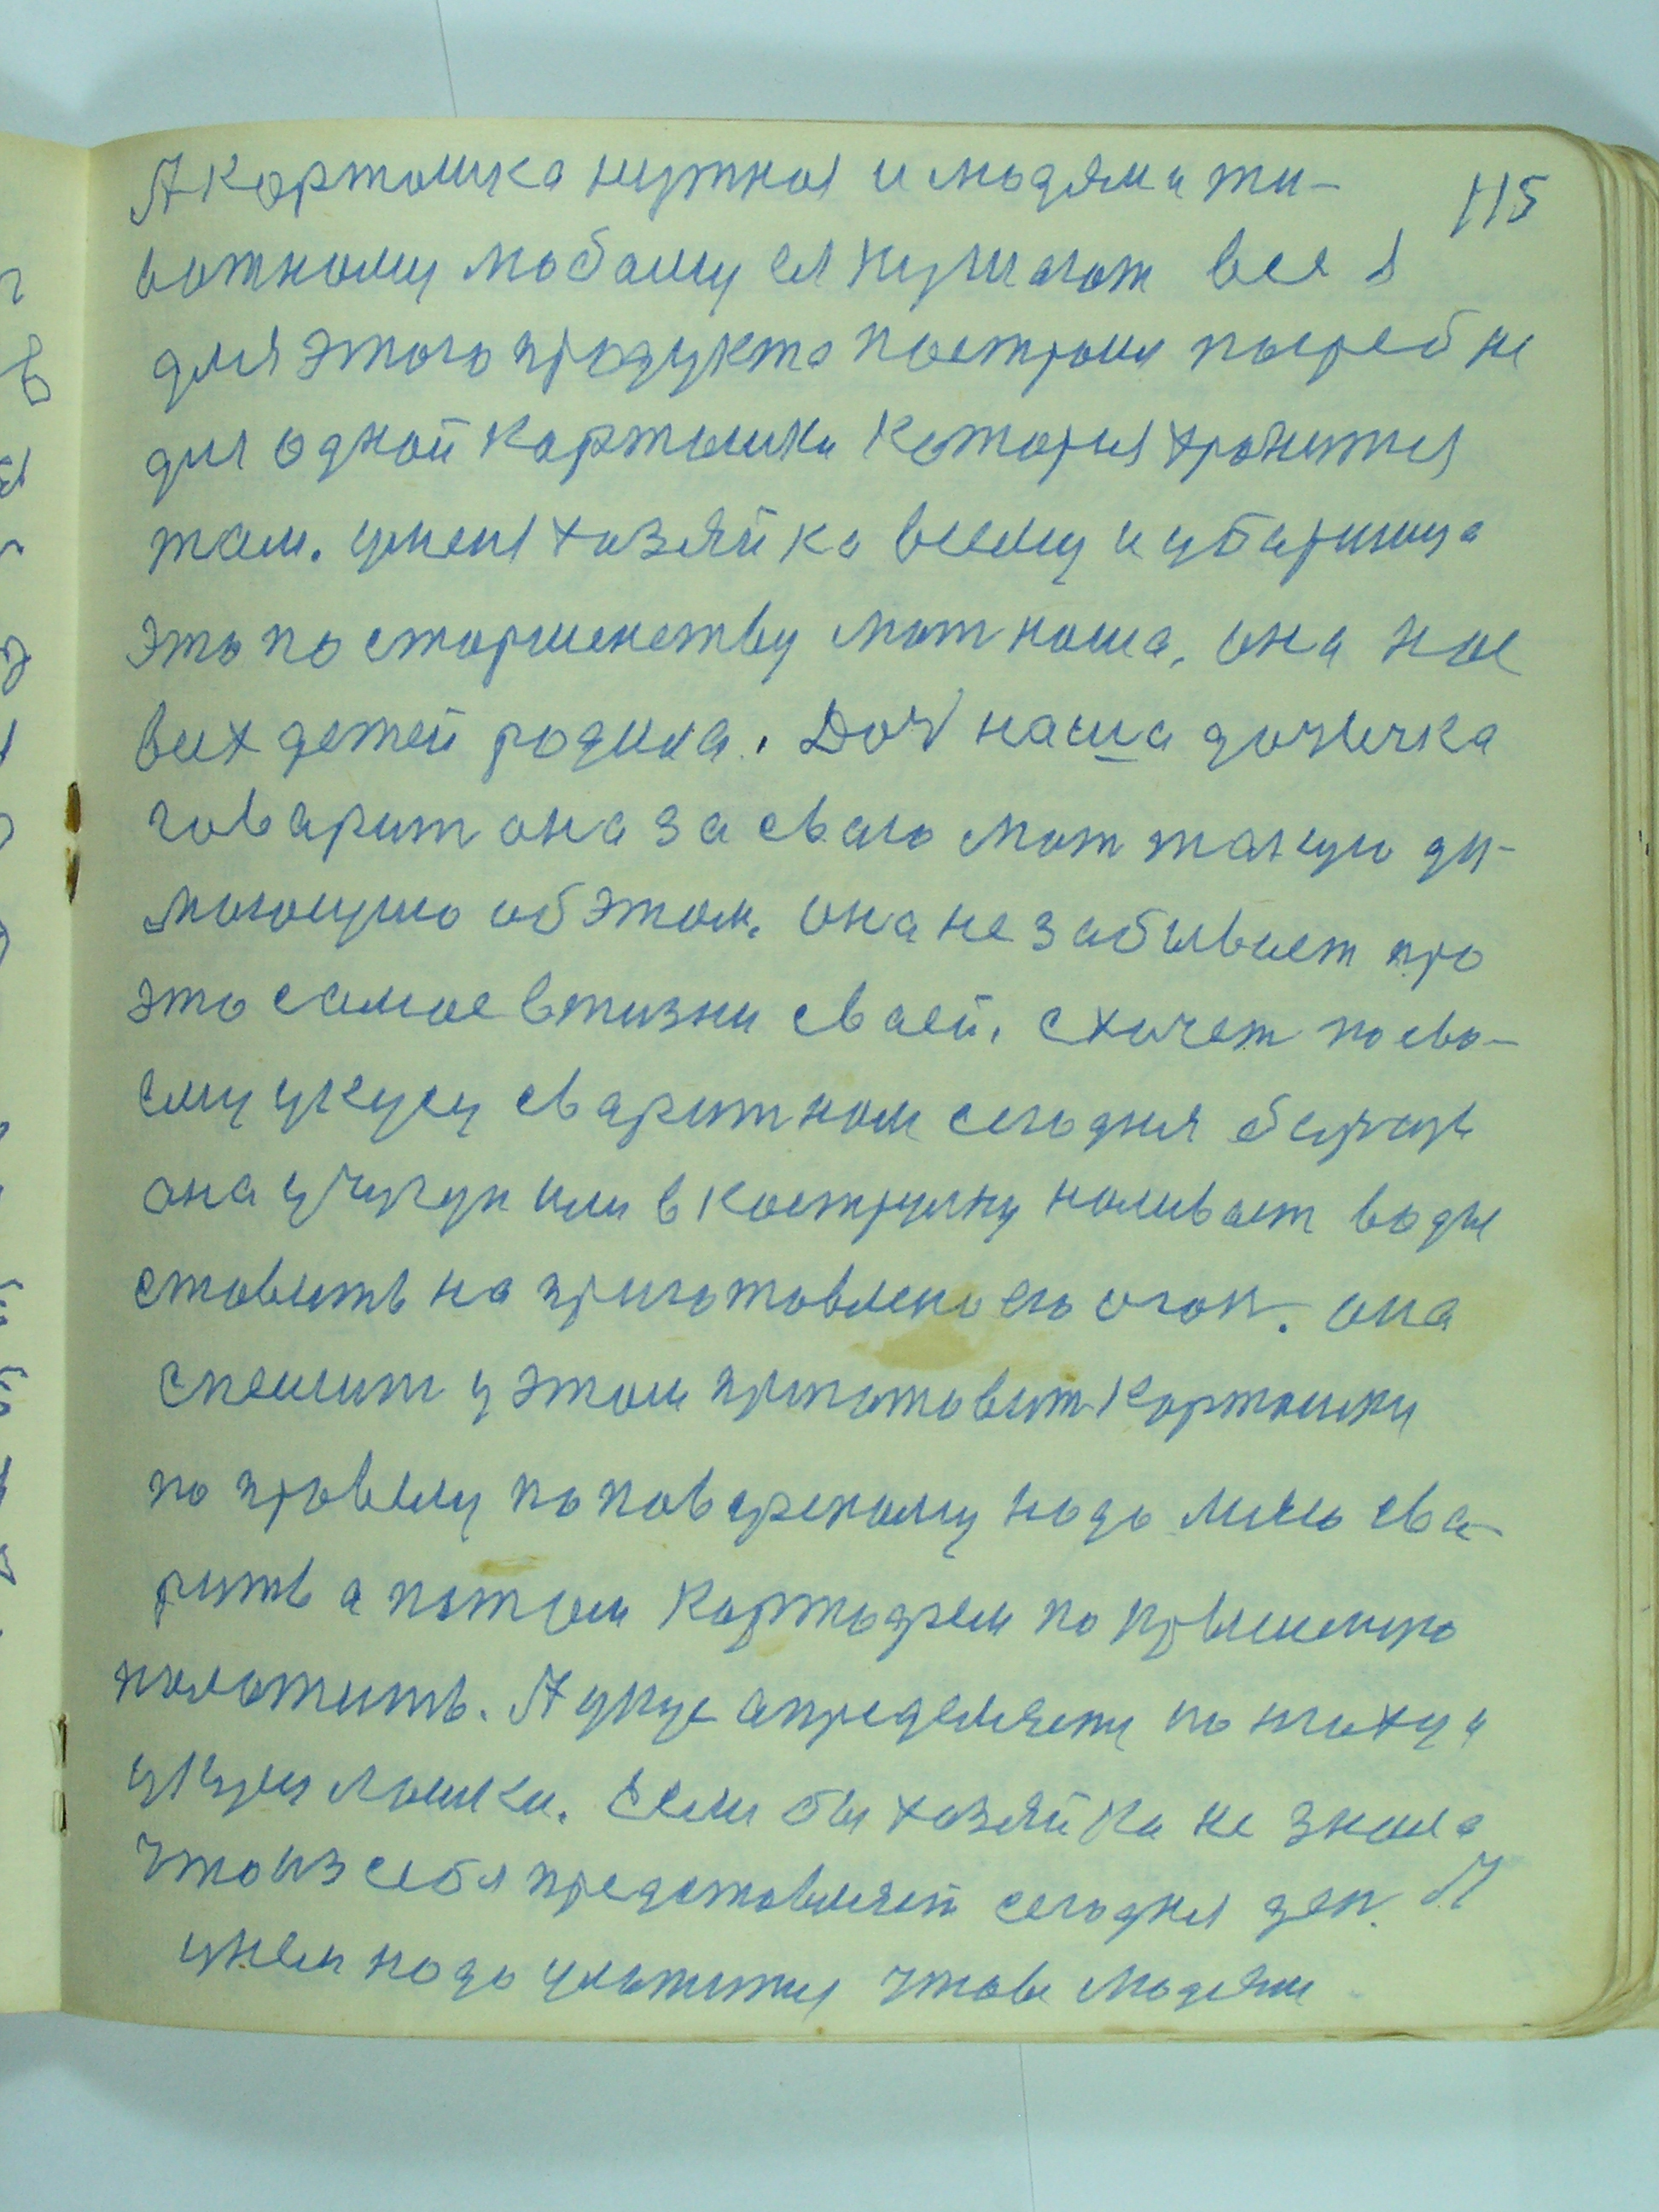 115
А картошка нужная и людям и жи-
вотному любому ея кушают все
для этого продукта построил погреб не
для одной картошки которая хранится
там. умеет хозяйка всему и уборщица
это по старшенству мат наша, она нас
всех детей родила. Доч наша дочичка
говарит она за сваю мат такую ду-
маюшую об этом. она не забывает про
это самое в жизни сваей. схочет по сво-
ему укусу сварит нам сегодня
она у чугун или в кострулку наливает воды
ставить на приготовленого огон. она
спешит у этом приготовит картошки
по правелу по поварскому надо мясо сва-
рить а потом картофел по
положить. А укус апределяет по
укуса ложки. Если бы хозяйка не знала
что из себя представляет сегодня ден. А
у нем надо уложится чтобы людям